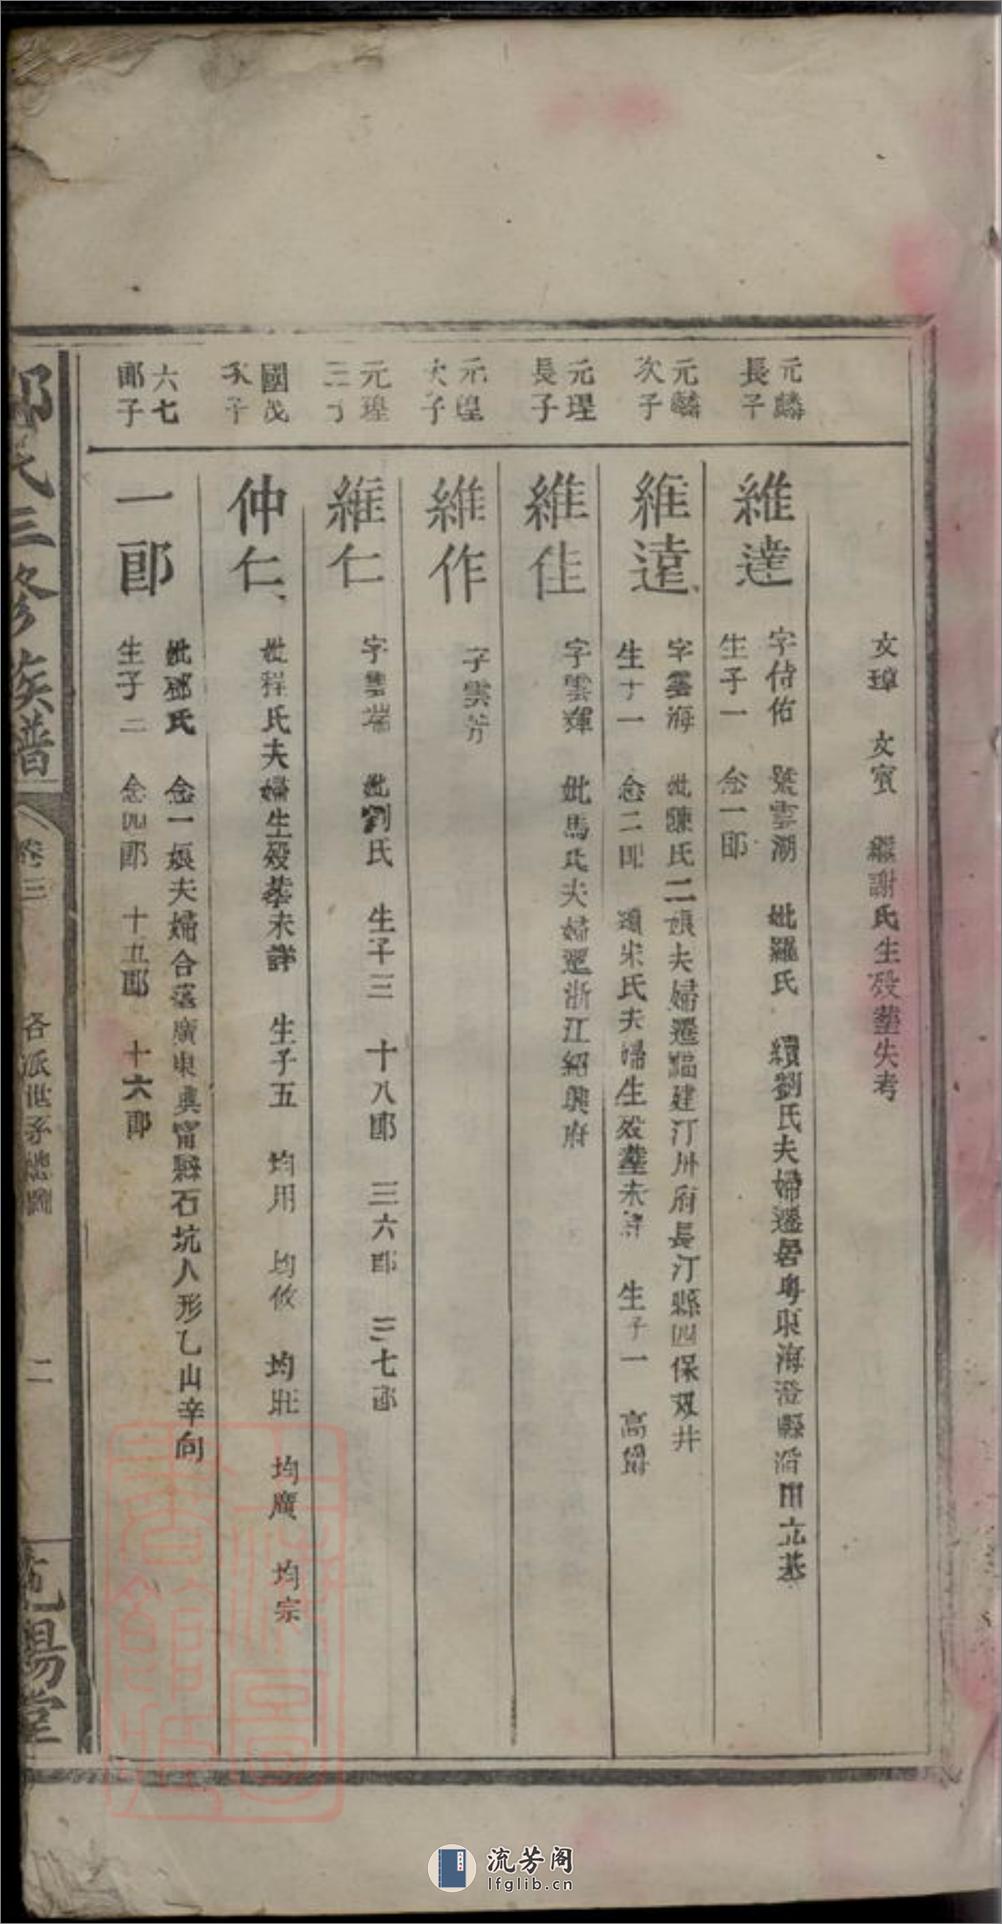 文璋 文賓 繼謝氏生歿塟失考
元麟
長子
維達
字侍佑 號雲湖 妣羅氏 續劉氏夫婦遷居粵東海澄縣 田立基
生子一 念一郎
元麟
次子
維遠
字雲海 妣陳氏二娘夫婦遷福建汀州府長汀縣四保双井
生子一 念二郎 續宋氏夫婦生歿塟未詳 生子一 高爵
元瑆
長子
維佳
字雲輝 妣馬氏夫婦遷浙江紹興府
元瑝
次子
維作
字雲芳
元瑝
三子
維仁
字雲端 妣劉氏 生子三 十八郎 三六郎 三七郎
國茂
次子
仲仁
妣程氏夫婦生歿塟未詳 生子五 均用 均攸 均壯 均廣 均宗
六七
郎子
一郎
妣鄧氏 念一娘夫婦合塟廣東興甯縣石坑人形乙山辛向
生子二 念四郎 十五郎 十六郎
氏三修族譜
卷三
各派世系總圖
二
陽堂
流芳阁
lfglib.cn